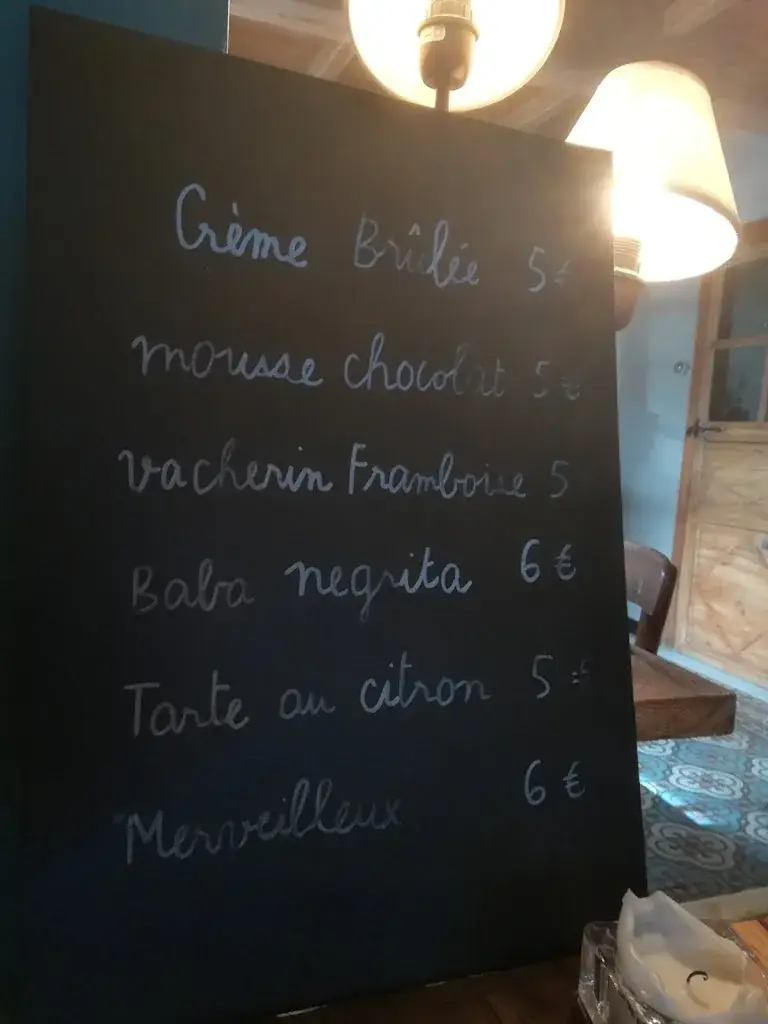 Crème Brûlée 5€
mousse chocolat 5€
vacherin Framboise 5
Baba negrita 6€
Tarte au citron 5€
Merveilleux 6€